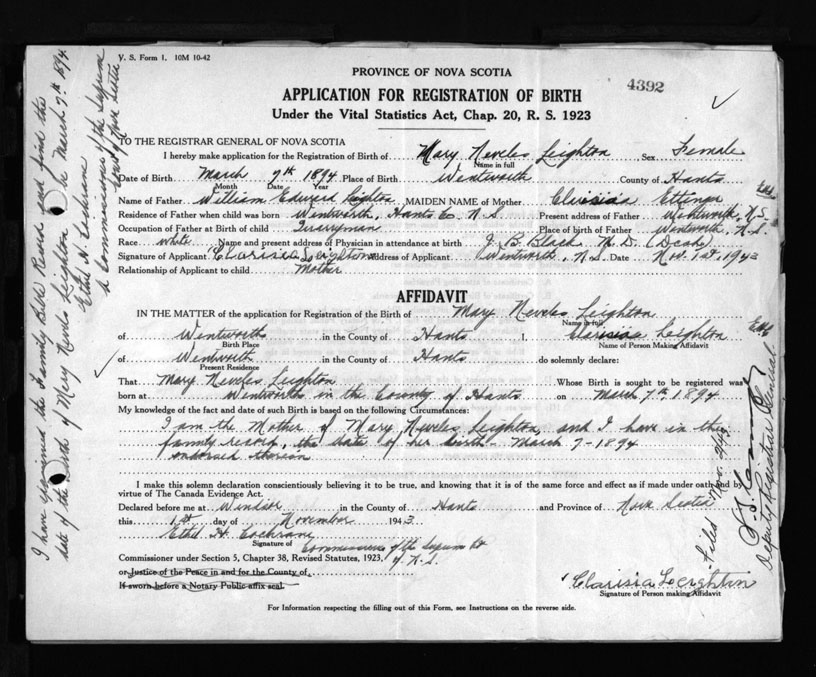 V. S. Form 1. 10M 10-42
4392
PROVINCE OF NOVA SCOTIA
APPLICATION FOR REGISTRATION OF BIRTH
Under the Vital Statistics Act, Chap. 20, R. S. 1923
TO THE REGISTRAR GENERAL OF NOVA SCOTIA
I hereby make application for the Registration of Birth of Mary Neveles Leighton Sex Female
Name in full
Date of Birth March 7th 1894 Place of Birth Wentworth County of Hants
Month Date Year
Name of Father William Edward Leighton MAIDEN NAME of Mother Clarisia Ettinger
Residence of Father when child was born Wentworth, Hants Co. N.S. Present address of Father Wentworth, N.S.
Occupation of Father at Birth of child Quarryman Place of birth of Father Wentworth, N.S.
Race White Name and present address of Physician in attendance at birth J. B. Black M.D. (Dead)
Signature of Applicant Clarisia Leighton Address of Applicant Wentworth, N.S. Date Nov. 1st, 1943
Relationship of Applicant to child Mother
AFFIDAVIT
IN THE MATTER of the application for Registration of the Birth of Mary Neveles Leighton
Name in full
of Wentworth in the County of Hants I, Clarisia Leighton
Birth Place Name of Person Making Affidavit
of Wentworth in the County of Hants do solemnly declare:
Present Residence
That Mary Neveles Leighton Whose Birth is sought to be registered was
born at Wentworth in the County of Hants on March 7th, 1894
My knowledge of the fact and date of such Birth is based on the following Circumstances:
I am the Mother of Mary Neveles Leighton, and I have in the
family record, the date of her birth - March 7 - 1894
endorsed therein
I make this solemn declaration conscientiously believing it to be true, and knowing that it is of the same force and effect as if made under oath and by
virtue of The Canada Evidence Act.
Declared before me at Windsor in the County of Hants and Province of Nova Scotia
this 1st day of November 1943
Ethel H. Cochrane
Signature of Commissioner of the Supreme Ct
Commissioner under Section 5, Chapter 38, Revised Statutes, 1923, of N.S.
or Justice of the Peace in and for the County of
If sworn before a Notary Public affix seal.
Clarisia Leighton
Signature of Person making Affidavit
For Information respecting the filling out of this Form, see Instructions on the reverse side.
I have examined the Family Bible Record and find the
date of the birth of Mary Neveles Leighton is March 7th 1894
Ethel H. Cochrane
A Commissioner of the Supreme
Court of Nova Scotia
Filed Nov.
Deputy Registrar General